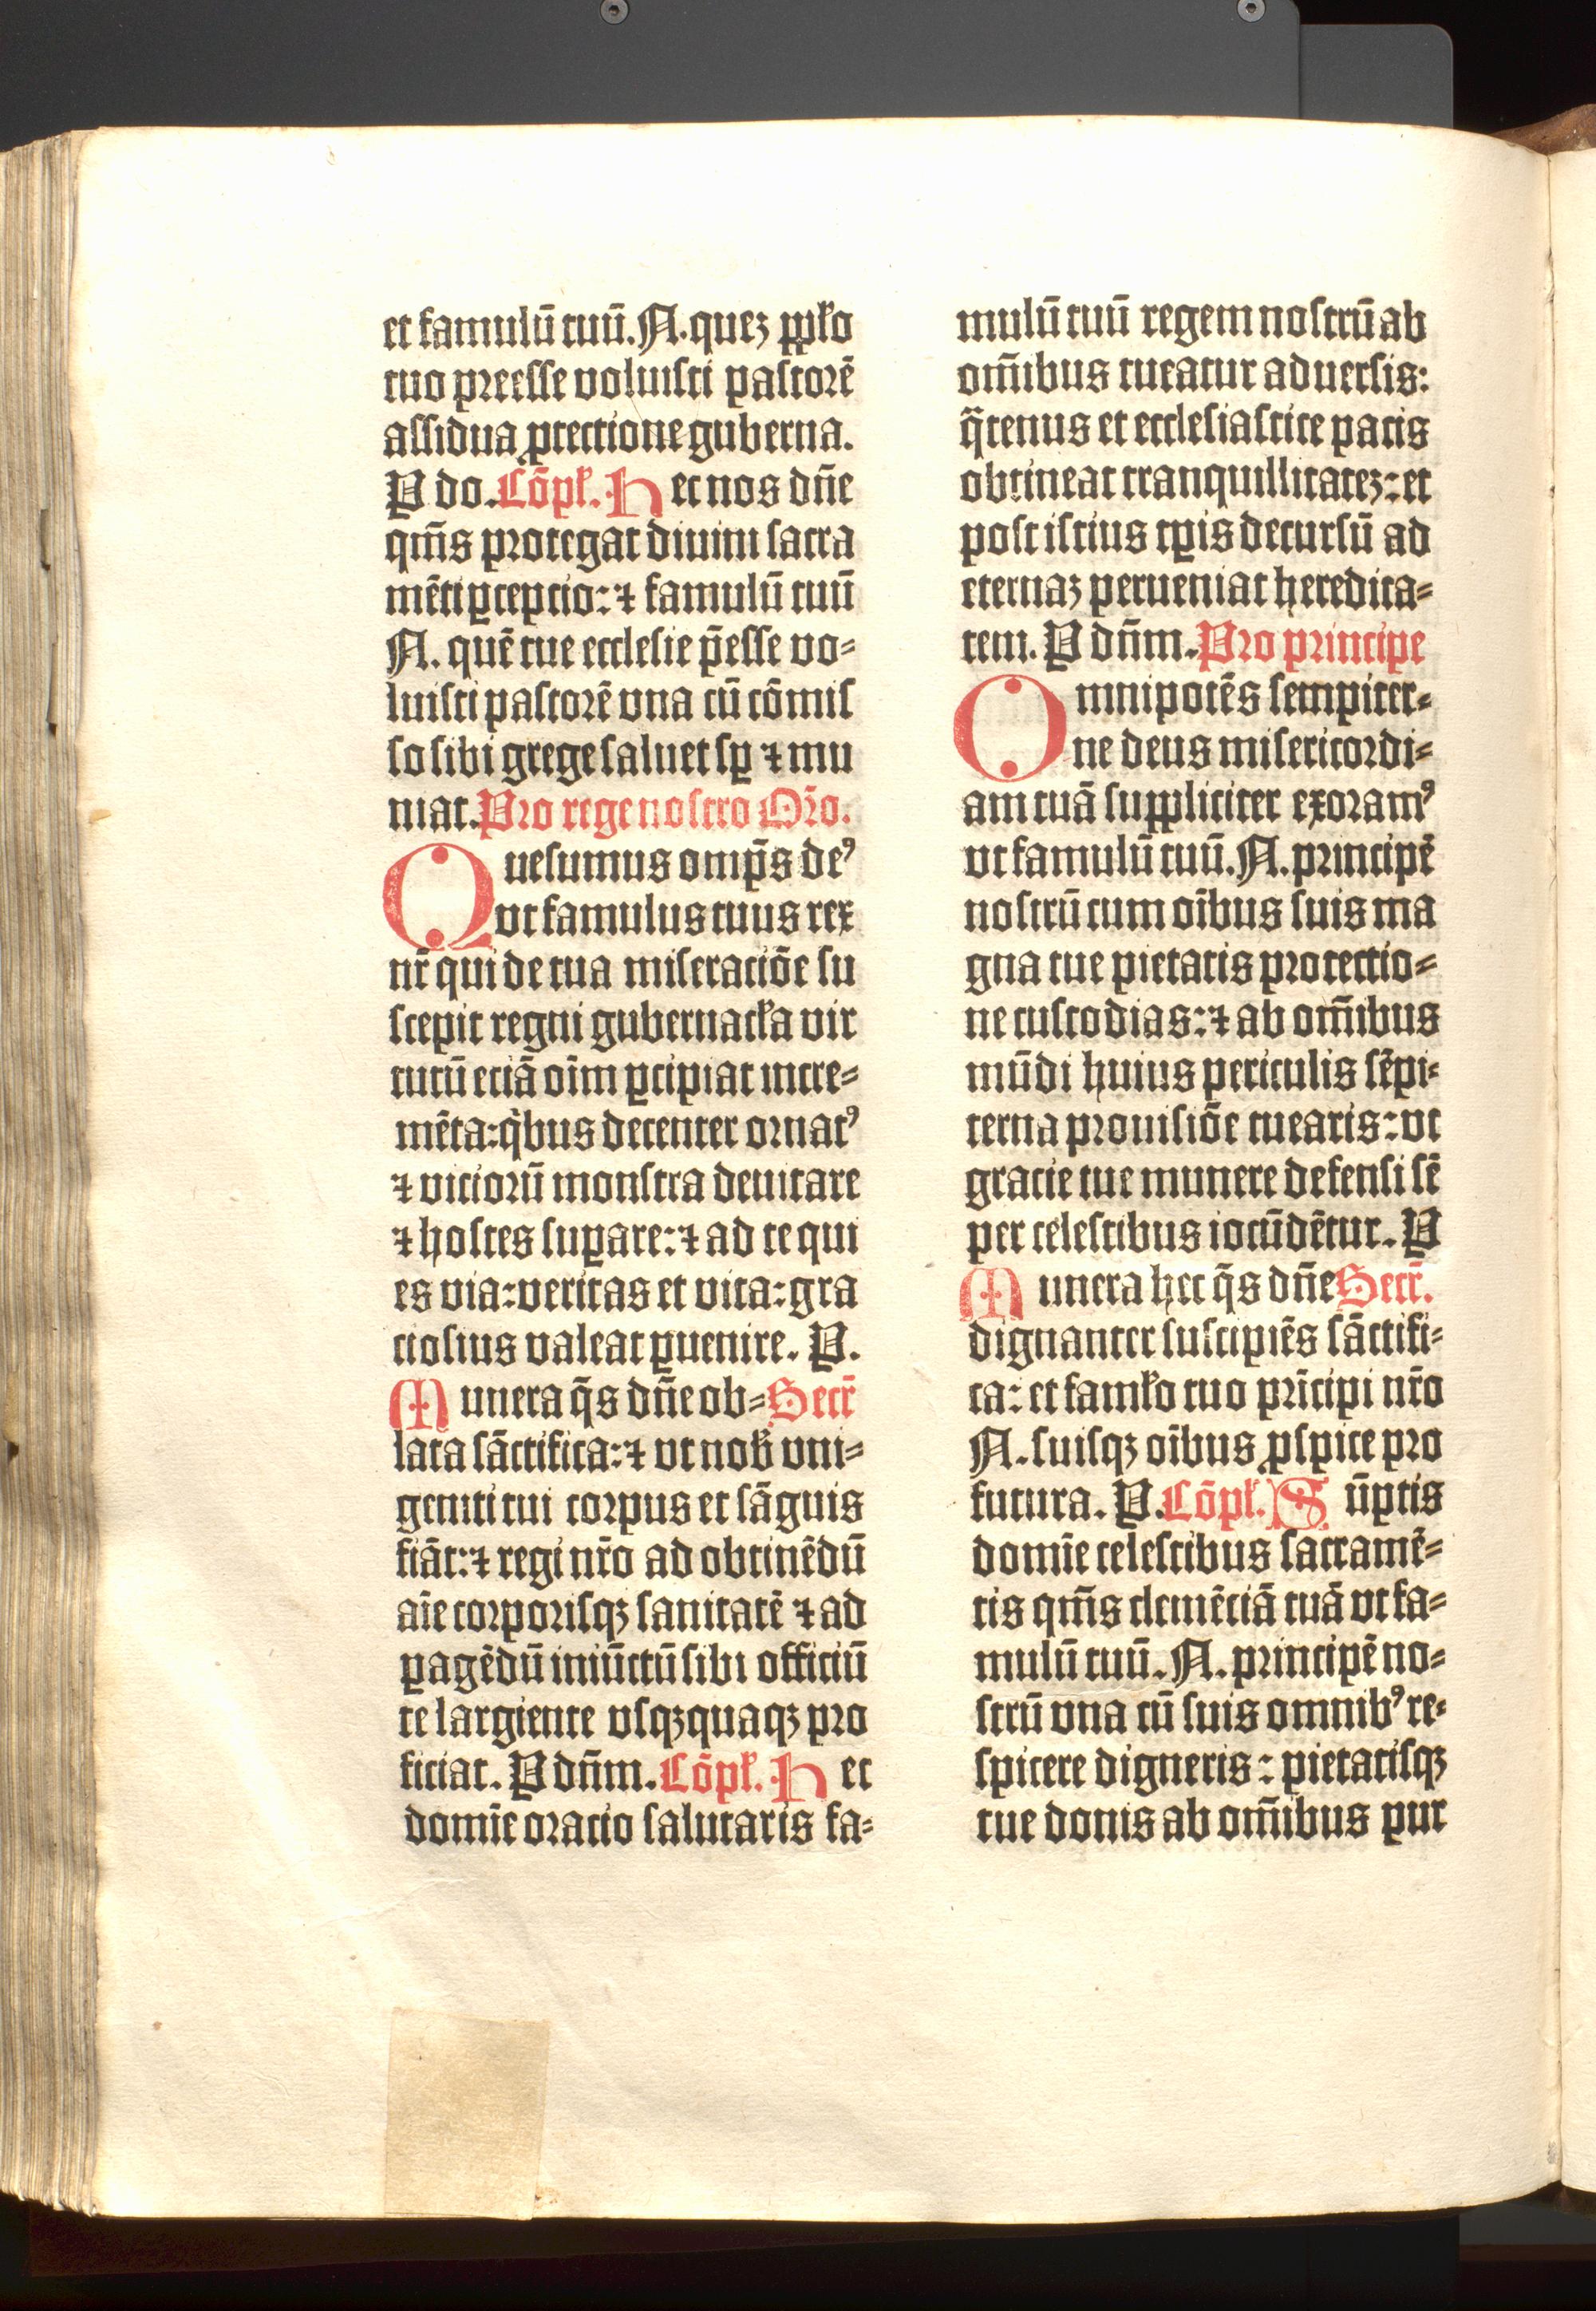 et famulū tuū. N. quez ppl'o
tuo preesse voluisti pastorē
assidua ꝓtectione guberna.
P do. Cōpl'. Hec nos dn̄e
qm̄s protegat diuini sacra
mēti ꝑcepcio: ⁊ famulū tuū
N. quē tue ecclesie p̄esse vo⸗
luisti pastorē vna cū cōmis
so sibi grege saluet sꝑ ⁊ mu
niat. Pro rege nostro Or̄o.
Quesumus omp̄s deꝰ
vt famulus tuus rex
nr̄ qui de tua miseraciōe su
scepit regni gubernac'la vir
tutū eciā oīm ꝑcipiat incre⸗
mēta: q̇bus decenter ornatꝰ
⁊ viciorū monstra deuitare
⁊ hostes suꝑare: ⁊ ad te qui
es via: veritas et vita: gra
ciosius valeat ꝑuenire. P.
Munera q̄s dn̄e ob⸗ Secr̄
lata sāctifica: ⁊ vt nob' vni⸗
geniti tui corpus et sāguis
fiāt: ⁊ regi nr̄o ad obtinēdū
aīe corporisqꝫ sanitatē ⁊ ad
ꝑagēdū iniūctū sibi officiū
te largiente vsqꝫquaqꝫ pro
ficiat. P dn̄m. Cōpl'. Hec
domīe oracio salutaris fa⸗
mulū tuū regem nostrū ab
om̄ibus tueatur aduersis:
q̄tenus et ecclesiastice pacis
obtineat tranquillitatez: et
post istius tꝑis decursū ad
eternaꝫ perueniat heredita⸗
tem. P dn̄m. Pro principe
Omnipotēs sempiter⸗
ne deus misericordi⸗
am tuā suppliciter exoramꝰ
vt famulū tuū. N. principē
nostrū cum oībus suis ma
gna tue pietatis protectio⸗
ne custodias: ⁊ ab om̄ibus
mūdi huius periculis sēpi⸗
terna prouisiōe tuearis: vt
gracie tue munere defensi sē
per celestibus iocūdētur. P
Munera hec q̄s dn̄e Secr̄.
dignanter suscipiēs sāctifi⸗
ca: et faml'o tuo prīcipi nr̄o
N. suisqꝫ oībus ꝓspice pro
futura. P. Cōpl'. Sūptis
domīe celestibus sacramē⸗
tis qm̄s clemēciā tuā vt fa⸗
mulū tuū. N. principē no⸗
strū vna cū suis omnibꝰ re⸗
spicere digneris: pietatisqꝫ
tue donis ab om̄ibus pur